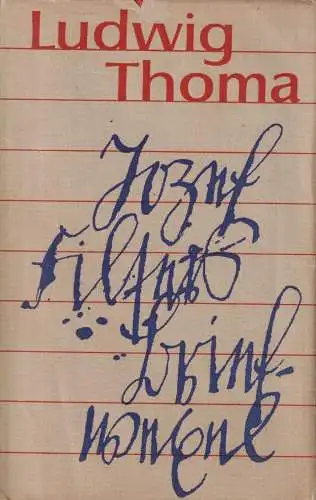 Ludwig
Thoma
Jozef
Filsers
Brief-
wexel